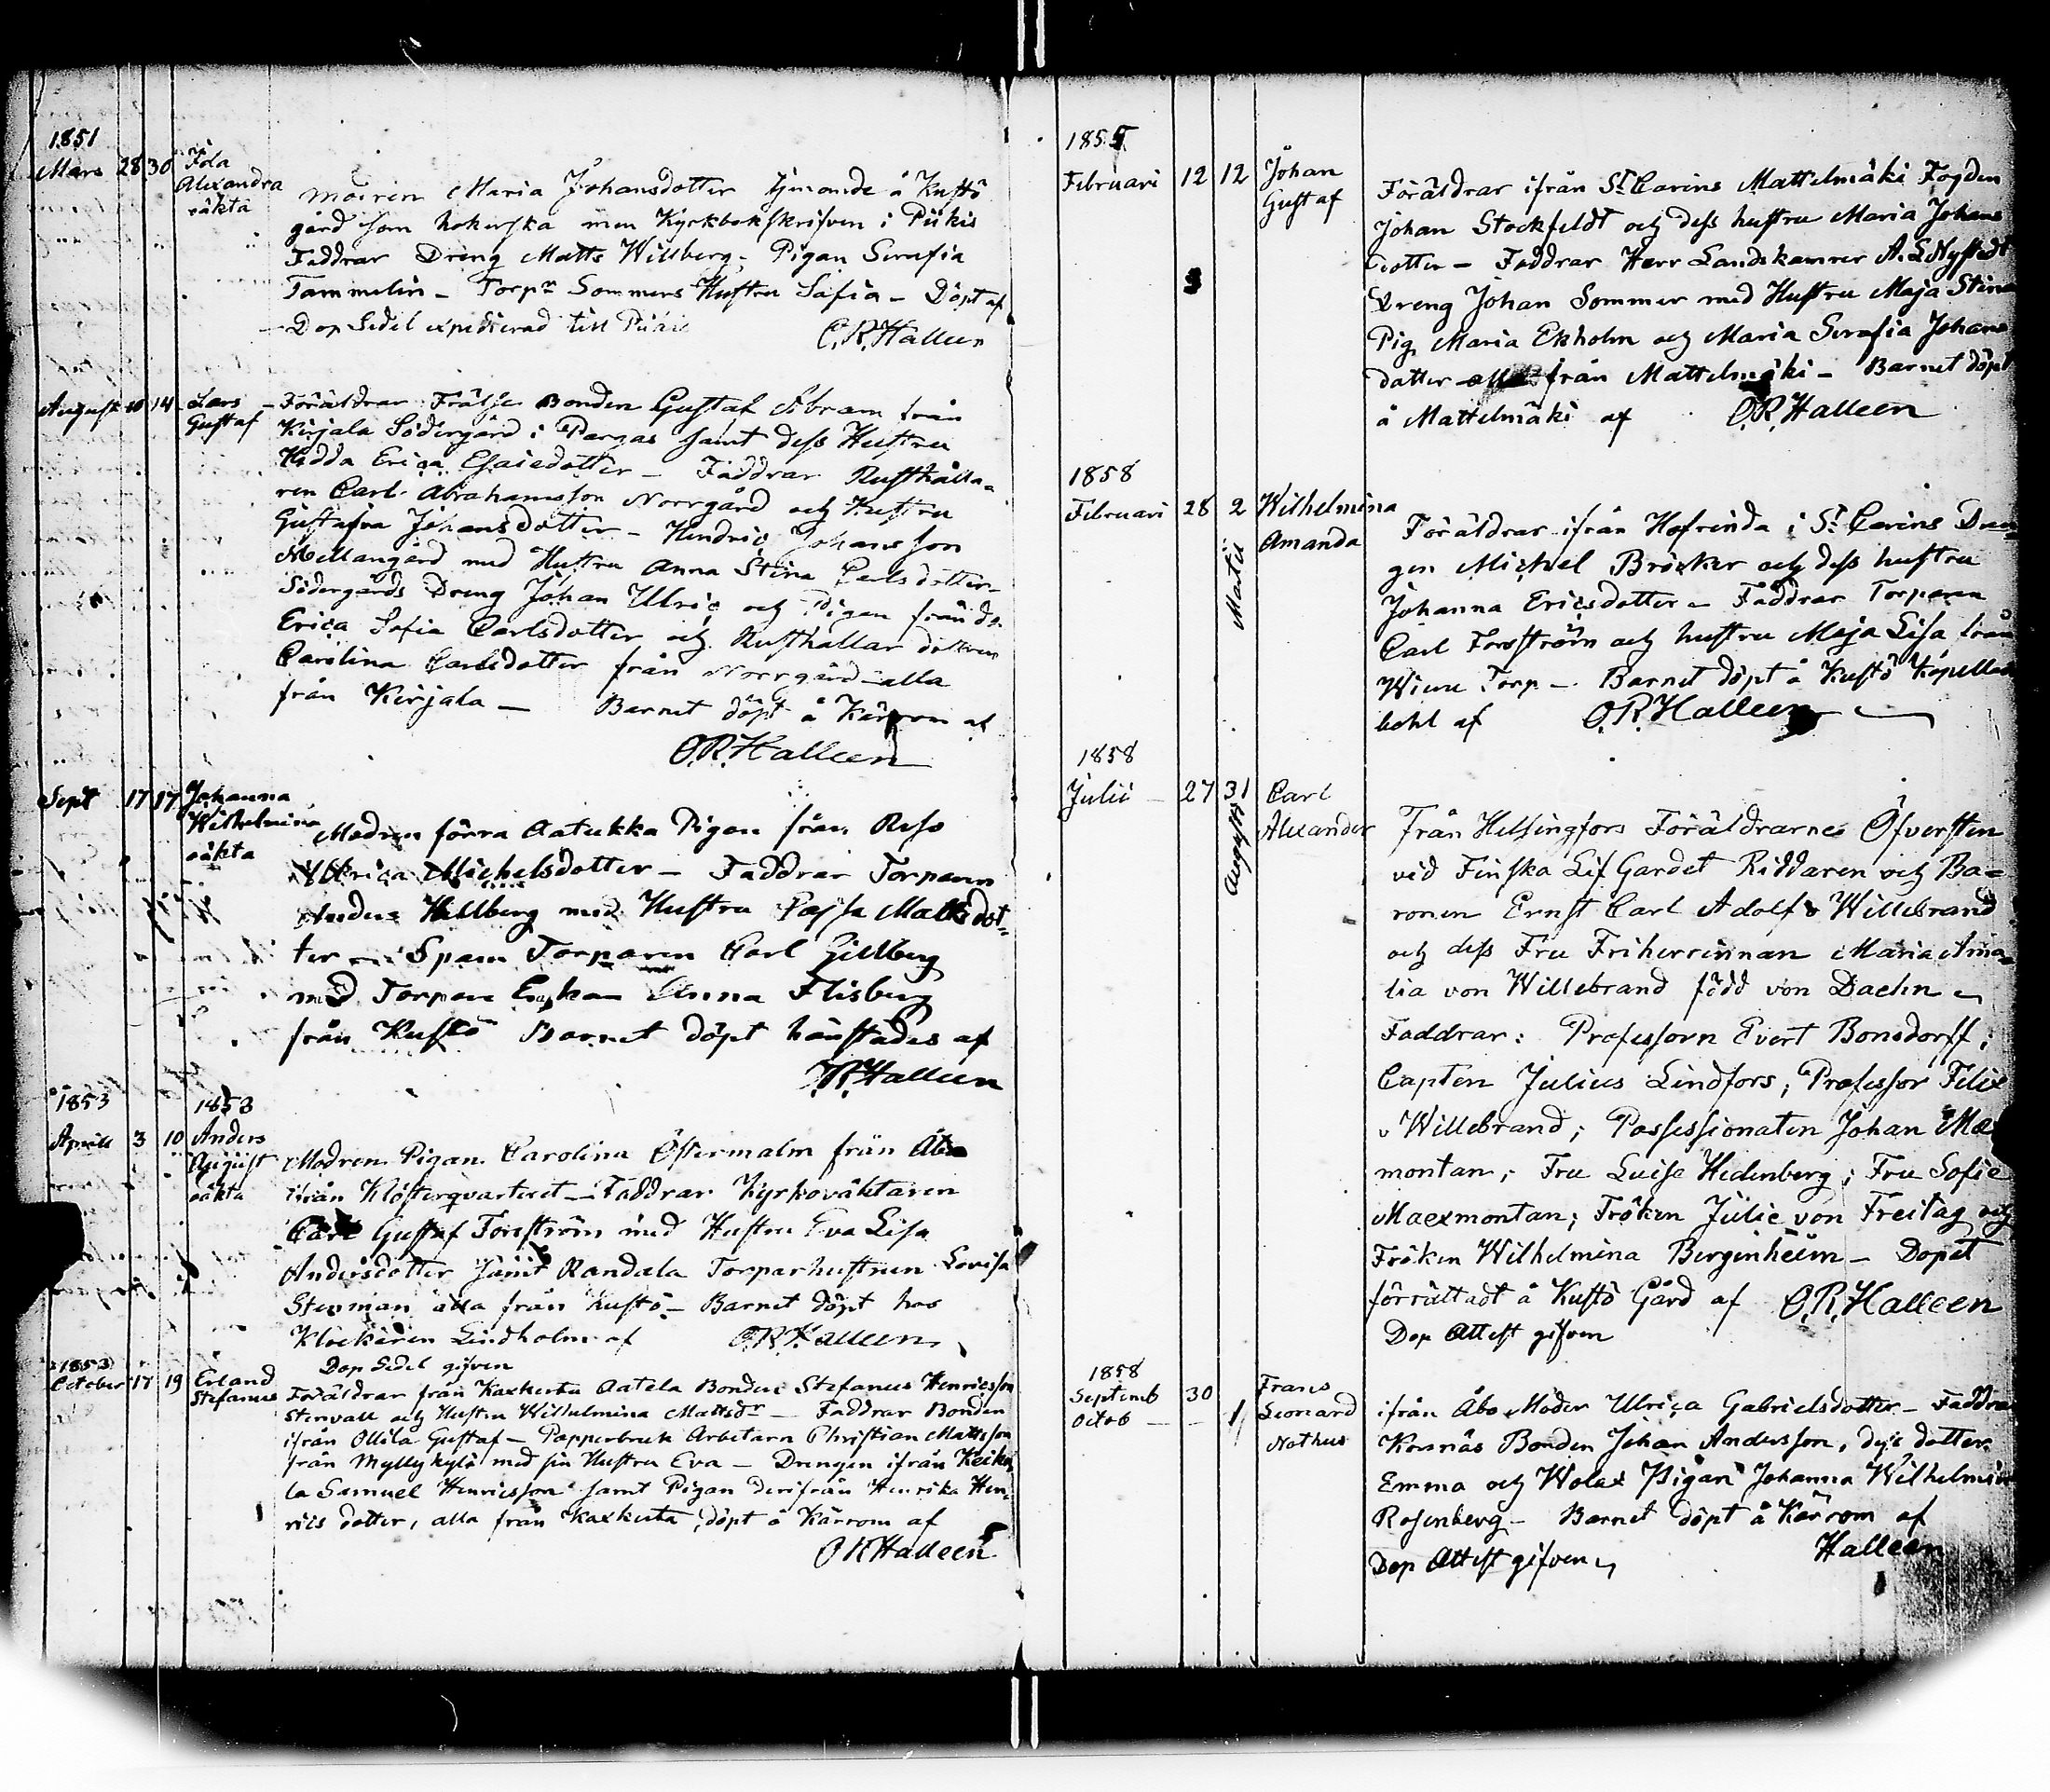 1851
Mars 28 30 Ida
Alexandra
oäkta
Modren Maria Johansdotter tjenande å Kustö
gård som kokerska men Kyrkbokskrifven i Piikis
Faddrar Dreng Matts Willberg - Pigan Serafia
Tammelin - Torpr Sommers Hustru Sofia - Döpt af
- Dop Sedel expedierad till Piikis O.R.Halleen
August 10 14 Lars
Gustaf
Föräldrar Frälse Bonden Gustaf Abram från
Kirjala Södergård i Pargas samt dess Hustru
Hedda Erica Esaiedotter - Faddrar Rusthålla-
ren Carl Abrahamsson Norrgård och Hustru
Gustafva Johansdotter - Hendric Johansson
Mellangård med Hustru Anna Stina Carlsdotter -
Södergårds Dreng Johan Ulric och Pigan från do
Erica Sofia Carlsdotter och Rusthållar dottren
Carolina Carlsdotter från Norrgård alla
från Kirjala - Barnet döpt å Kärrom af
O.R.Halleen
Sept 17 17 Johanna
Wilhelmina
oäkta
Modren förra Aatukka Pigan från Reso
Ulrica Michelsdotter - Faddrar Torparen
Anders Hellberg med Hustru Cajsa Mattsdot-
ter - Spani Torparen Carl Gillberg
med Torpare Enkan Anna Flisberg
från Kustö Barnet döpt härstädes af
O.R.Halleen
1853 1853
Aprill 3 10 Anders
August
oäkta
Modren Pigan Carolina Östermalm från Åbo
ifrån Klosterqvarteret - Faddrar Kyrkoväktaren
Carl Gustaf Forsström med Hustru Eva Lisa
Andersdotter samt Randala Torparhustrun Lovisa
Stenman alla från Kustö - Barnet döpt hos
Klockaren Lindholm af O.R.Halleen
Dop Sedel gifven
1853
October 17 19 Erland
Stefanus
Föräldrar från Kaxkerta Aatela Bonden Stefanus Henricsson
Stenvall och Hustru Wilhelmina Mattsdr - Faddrar Bonden
ifrån Ollila Gustaf - Papperbruk Arbetarn Christian Mattsson
från Myllykylä med sin Hustru Eva - Drengen ifrån
la Samuel Henricsson samt Pigan derifrån Henrika Hen-
rics dotter, alla från Kaxkerta, döpt å Kärrom af
O R Halleen
1855
Februari 12 12 Johan
Gustaf
Föräldrar ifrån St Carins Mattelmäki Fogden
Johan Stockfeldt och dess hustru Maria Johans
dotter - Faddrar Herr Landskamrer A. L. Nystedt
Dreng Johan Sommer med Hustru Maja Stina
Pig. Maria Ekholm och Maria Serafia Johans
dotter alla från Mattelmäki - Barnet döpt
å Mattelmäki af O.R.Halleen
1858
Februari 28 2 Martii Wilhelmina
Amanda
Föräldrar ifrån Hofrinda i St Carins Dren-
gen Michel Bröcker och dess hustru
Johanna Ericsdotter - Faddrar Torparen
Carl Forsström och hustru Maja Lisa från
Torp - Barnet döpt å Kustö Kapellans
bohl af O.R.Halleen
1858
Julii 27 31 Augusti Carl
Alexander
Från Helsingfors Föräldrarne Öfversten
vid Finska Lif Gardet Riddaren och Ba-
ronen Ernst Carl Adolf v Willebrand
och dess Fru Friherrinnan Maria Ama-
lia von Willebrand född von Daehn -
Faddrar: Professorn Evert Bonsdorff;
Capten Julius Lindfors; Professor Felix
v Willebrand; Possessionaten Johan Mæx-
montan; Fru Luise Hedenberg; Fru Sofie
Maexmontan; Fröken Julie von Freitag och
Fröken Wilhelmina Bergenheim - Dopet
förrättadt å Kustö Gård af O.R.Halleen
Dop Attest gifven
1858
Septemb 30
Octob - - 1 Frans
Leonard
Nothus
ifrån Åbo Moder Ulrica Gabrielsdotter - Faddrar
Korsnäs Bonden Johan Andersson, dess dotter
Emma och Wolax Pigan Johanna Wilhelmina
Rosenberg - Barnet döpt å Kärrom af
Halleen
Dop Attest gifven